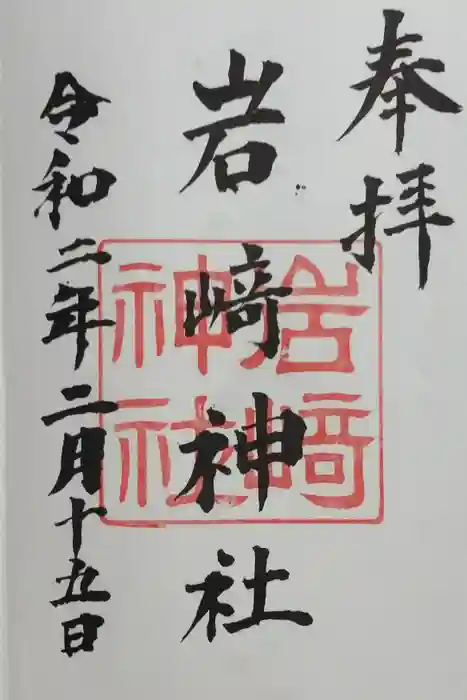 奉拝
岩﨑神社
岩﨑神社
令和二年二月十五日